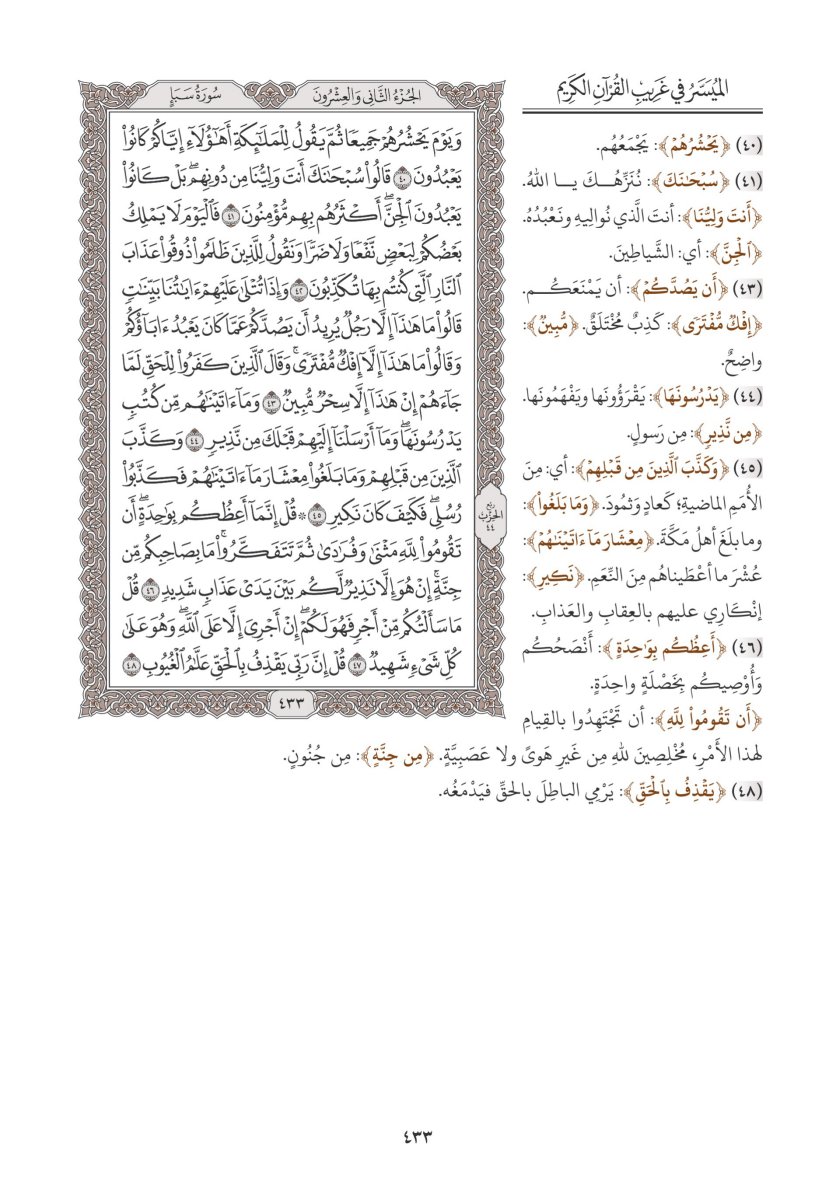 الميسر في غريب القرآن الكريم
سُورَةُ سَبَإٍ
الجُزْءُ الثَّانِي وَالعِشْرُونَ
وَيَوْمَ يَحْشُرُهُمْ جَمِيعًا ثُمَّ يَقُولُ لِلْمَلَٰٓئِكَةِ أَهَٰٓؤُلَآءِ إِيَّاكُمْ كَانُوا۟
يَعْبُدُونَ ٤٠ قَالُوا۟ سُبْحَٰنَكَ أَنتَ وَلِيُّنَا مِن دُونِهِم ۖ بَلْ كَانُوا۟
يَعْبُدُونَ ٱلْجِنَّ ۖ أَكْثَرُهُم بِهِم مُّؤْمِنُونَ ٤١ فَٱلْيَوْمَ لَا يَمْلِكُ
بَعْضُكُمْ لِبَعْضٍ نَّفْعًا وَلَا ضَرًّا وَنَقُولُ لِلَّذِينَ ظَلَمُوا۟ ذُوقُوا۟ عَذَابَ
ٱلنَّارِ ٱلَّتِى كُنتُم بِهَا تُكَذِّبُونَ ٤٢ وَإِذَا تُتْلَىٰ عَلَيْهِمْ ءَايَٰتُنَا بَيِّنَٰتٍ
قَالُوا۟ مَا هَٰذَآ إِلَّا رَجُلٌ يُرِيدُ أَن يَصُدَّكُمْ عَمَّا كَانَ يَعْبُدُ ءَابَآؤُكُمْ
وَقَالُوا۟ مَا هَٰذَآ إِلَّآ إِفْكٌ مُّفْتَرًى ۚ وَقَالَ ٱلَّذِينَ كَفَرُوا۟ لِلْحَقِّ لَمَّا
جَآءَهُمْ إِنْ هَٰذَآ إِلَّا سِحْرٌ مُّبِينٌ ٤٣ وَمَآ ءَاتَيْنَٰهُم مِّن كُتُبٍ
يَدْرُسُونَهَا ۖ وَمَآ أَرْسَلْنَآ إِلَيْهِمْ قَبْلَكَ مِن نَّذِيرٍ ٤٤ وَكَذَّبَ
ٱلَّذِينَ مِن قَبْلِهِمْ وَمَا بَلَغُوا۟ مِعْشَارَ مَآ ءَاتَيْنَٰهُمْ فَكَذَّبُوا۟
رُسُلِى ۖ فَكَيْفَ كَانَ نَكِيرِ ٤٥ ۞ قُلْ إِنَّمَآ أَعِظُكُم بِوَٰحِدَةٍ ۖ أَن
تَقُومُوا۟ لِلَّهِ مَثْنَىٰ وَفُرَٰدَىٰ ثُمَّ تَتَفَكَّرُوا۟ ۚ مَا بِصَاحِبِكُم مِّن
جِنَّةٍ ۚ إِنْ هُوَ إِلَّا نَذِيرٌ لَّكُم بَيْنَ يَدَىْ عَذَابٍ شَدِيدٍ ٤٦ قُلْ
مَا سَأَلْتُكُم مِّنْ أَجْرٍ فَهُوَ لَكُمْ ۖ إِنْ أَجْرِىَ إِلَّا عَلَى ٱللَّهِ ۖ وَهُوَ عَلَىٰ
كُلِّ شَىْءٍ شَهِيدٌ ٤٧ قُلْ إِنَّ رَبِّى يَقْذِفُ بِٱلْحَقِّ عَلَّٰمُ ٱلْغُيُوبِ ٤٨
ربع
الحزب
٤٤
٤٣٣
(٤٠) ﴿يَحْشُرُهُمْ﴾: يَجْمَعُهُم.
(٤١) ﴿سُبْحَٰنَكَ﴾: نُنَزِّهُكَ يا اللهُ.
﴿أَنتَ وَلِيُّنَا﴾: أنتَ الَّذي نُوالِيهِ ونَعْبُدُهُ.
﴿ٱلْجِنَّ﴾: أي: الشَّياطِينَ.
(٤٣) ﴿أَن يَصُدَّكُمْ﴾: أن يَمْنَعَكُم.
﴿إِفْكٌ مُّفْتَرًى﴾: كَذِبٌ مُخْتَلَقٌ. ﴿مُّبِينٌ﴾:
واضِحٌ.
(٤٤) ﴿يَدْرُسُونَهَا﴾: يَقْرَؤُونَها ويَفْهَمُونَها.
﴿مِن نَّذِيرٍ﴾: مِن رَسولٍ.
(٤٥) ﴿وَكَذَّبَ ٱلَّذِينَ مِن قَبْلِهِمْ﴾: أي: مِنَ
الأُمَمِ الماضيةِ؛ كَعادٍ وَثمُودَ. ﴿وَمَا بَلَغُوا۟﴾:
وما بلَغَ أهلُ مَكَّةَ. ﴿مِعْشَارَ مَآ ءَاتَيْنَٰهُمْ﴾:
عُشْرَ ما أعْطَيناهُم مِنَ النِّعَمِ. ﴿نَكِيرِ﴾:
إنْكَارِي عليهم بالعِقابِ والعَذابِ.
(٤٦) ﴿أَعِظُكُم بِوَٰحِدَةٍ﴾: أَنْصَحُكُم
وَأُوْصِيكُم بِخَصْلَةٍ واحِدَةٍ.
﴿أَن تَقُومُوا۟ لِلَّهِ﴾: أن تَجْتَهِدُوا بالقِيامِ
لهذا الأَمْرِ، مُخْلِصِينَ للهِ مِن غَيرِ هَوىً ولا عَصَبِيَّةٍ. ﴿مِن جِنَّةٍ﴾: مِن جُنُونٍ.
(٤٨) ﴿يَقْذِفُ بِٱلْحَقِّ﴾: يَرْمِي الباطِلَ بالحقِّ فيَدْمَغُه.
٤٣٣